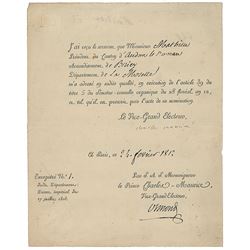 J'ai reçu le serment, que Monsieur Mathieu
Président du Canton d'Audun le roman
Arrondissement de Briey
Département de La Moselle
m'a adressé en ladite qualité, en exécution de l'article
du titre 5 du Sénatus-consulte organique du 28 floréal an
et tel qu'il est prescrit, pour l'acte de sa nomination.
Le Vice-Grand Electeur,
A Paris, ce 24 février 181
Enregistré N.º 1.
Bulle, Départemens,
Décret impérial du
17 juillet 1806.
Par S. A. S. Monseigneur
le Prince Charles-Maurice,
Vice-Grand-Electeur,